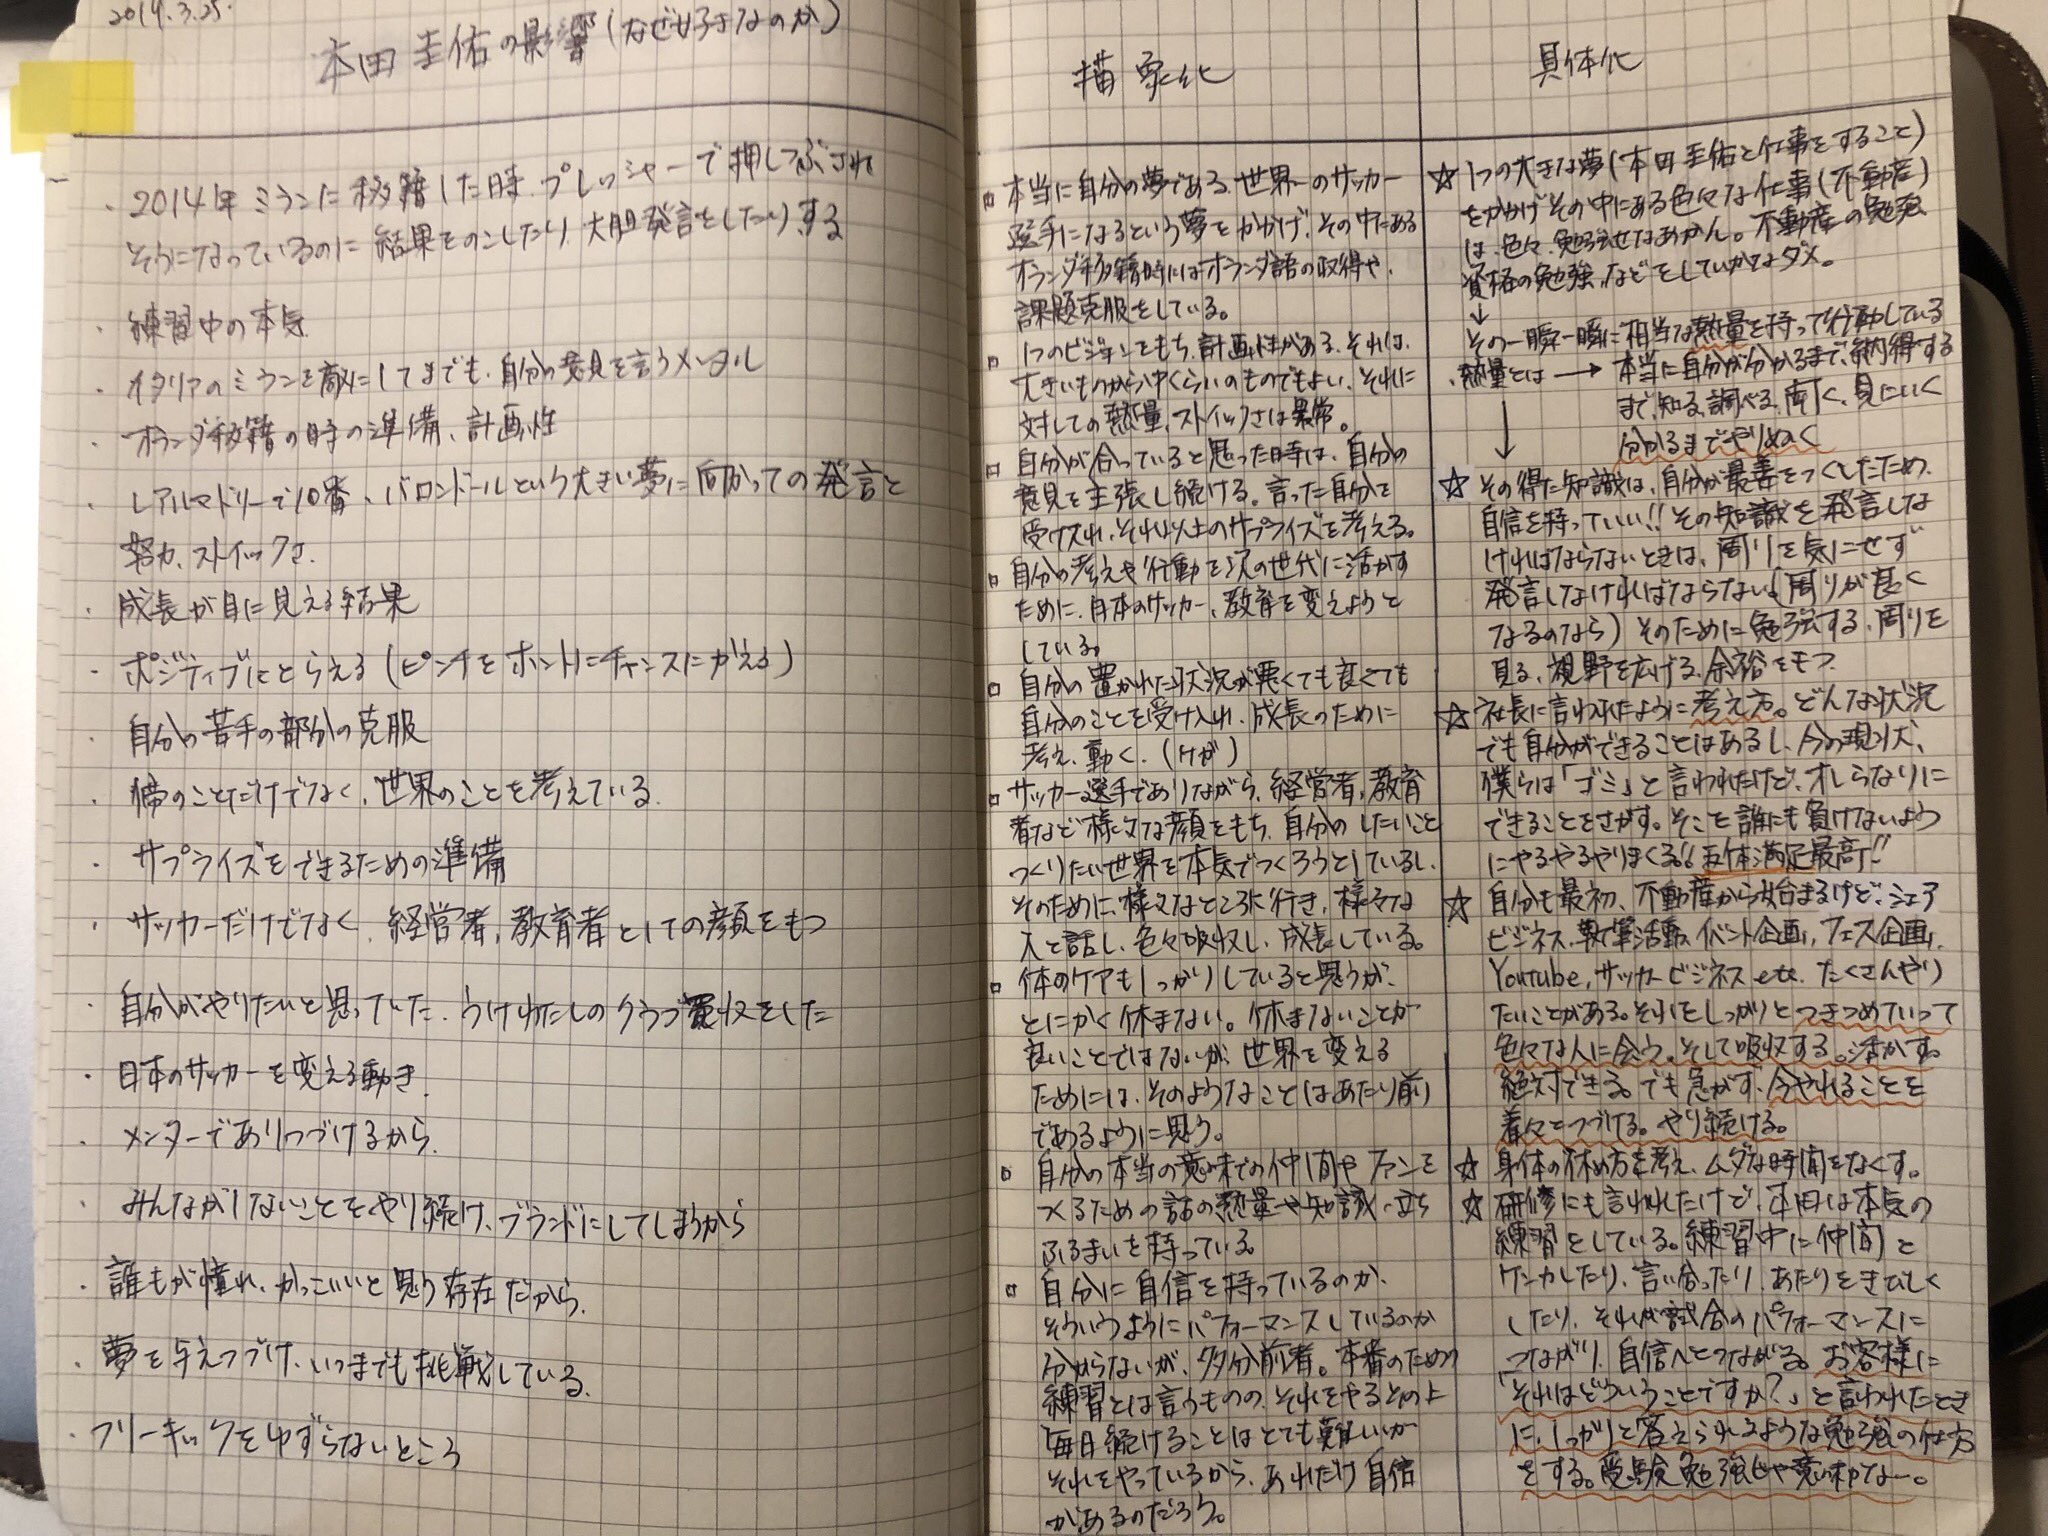 2019.3.25.
本田圭佑の影響(なぜ好きなのか)
・2014年ミランに移籍した時、プレッシャーで押しつぶされ
そうになっているのに結果をのこしたり、大胆発言をしたりする
・練習中の本気
・イタリアのミランを敵にしてまでも、自分の意見を言うメンタル
・オランダ移籍の時の準備、計画性
・レアルマドリーで10番、バロンドールという大きい夢に向かっての発言と
努力、ストイックさ.
・成長が目に見える結果
・ポジティブにとらえる(ピンチをホントにチャンスにかえる)
・自分の苦手の部分の克服
・俺のことだけでなく、世界のことを考えている.
・サプライズをできるための準備
・サッカーだけでなく、経営者,教育者としての顔をもつ
・自分がやりたいと思っていた、うけわたしのクラブ買収をした
・日本のサッカーを変える動き.
・メンターでありつづけるから.
・みんながしないことをやり続け、ブランドにしてしまうから
・誰もが憧れ、かっこいいと思う存在だから.
・夢を与えつづけ、いつまでも挑戦している.
・フリーキックをゆずらないところ
抽象化
□本当に自分の夢である、世界一のサッカー
選手になるという夢をかかげ、その中にある
オランダ移籍時にはオランダ語の取得や、
課題克服をしている。
□1つのビジョンをもち、計画性がある、それは、
大きいものから中くらいのものでもよい、それに
対しての熱量、ストイックさは異常。
□自分が合っていると思った時は、自分の
意見を主張し続ける。言った自分を
受け入れ、それ以上のサプライズを考える。
□自分の考えや行動を次の世代に活かす
ために、日本のサッカー、教育を変えようと
している。
□自分の置かれた状況が悪くても良くても
自分のことを受け入れ、成長のために
考え、動く.(けが)
□サッカー選手でありながら、経営者,教育
者など様々な顔をもち、自分のしたいこと
つくりたい世界を本気でつくろうとしているし、
そのために、様々なところに行き、様々な
人と話し、色々吸収し、成長している。
□体のケアもしっかりしていると思うが、
とにかく休まない。休まないことが
良いことではないが、世界を変える
ためには、そのようなことはあたり前
であるように思う。
□自分の本当の意味での仲間やファンを
つくるための話の熱量や知識、立ち
ふるまいを持っている
□自分に自信を持っているのか、
そういうようにパフォーマンスしているのか
分からないが、多分前者。本番のための
練習とは言うものの、それをやるその上
毎日続けることはとても難しいが
それをやっているから、あれだけ自信
があるのだろう。
具体化
☆1つの大きな夢(本田圭佑と仕事をすること)
をかかげその中にある色々な仕事(不動産)
は、色々、勉強せなあかん。不動産の勉強
資格の勉強、などをしていかなダメ。
↓
その一瞬一瞬に相当な熱量を持って行動している
・熱量とは→本当に自分が分かるまで、納得する
まで、知る、調べる、聞く、見にいく
↓分かるまでやりぬく
☆その得た知識は、自分が最善をつくしたため、
自信を持っていい!!その知識を発言しな
ければならないときは、周りを気にせず
発言しなければならない(周りが良く
なるのなら)そのために勉強する、周りを
見る、視野を広げる、余裕をもつ
☆社長に言われたように考え方。どんな状況
でも自分ができることはあるし、今の現状、
僕らは「ゴミ」と言われたけど、オレらなりに
できることをさがす。そこを誰にも負けないよう
にやるやるやりまくる!!五体満足最高!!
☆自分も最初、不動産から始まるけど、シェア
ビジネス、執筆活動、イベント企画、フェス企画、
Youtube,サッカービジネスetc.たくさんやり
たいことがある。それをしっかりとつきつめていって
色々な人に会う。そして吸収する。活かす。
絶対できる。でも急がず、今やれることを
着々とつづける。やり続ける。
☆身体の休め方を考え、ムダな時間をなくす。
☆研修にも言われたけど、本田は本気の
練習をしている。練習中に仲間と
ケンカしたり、言い合ったり、あたりをきびしく
したり、それが試合のパフォーマンスに
つながり、自信へとつながる。お客様に
「それはどういうことですか?」と言われたとき
に、しっかりと答えられるような勉強の仕方
をする。受験勉強じゃ意味なー。